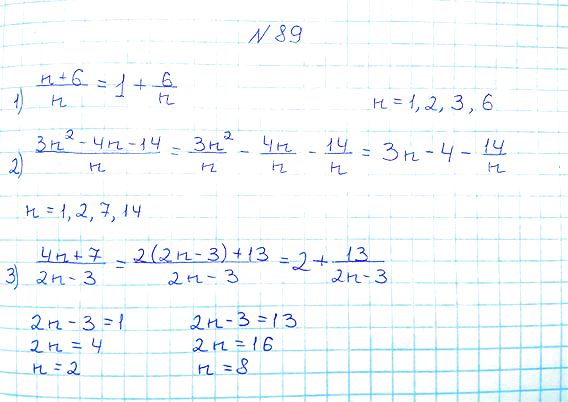 № 89
1) (n+6)/n = 1 + 6/n n = 1, 2, 3, 6
2) (3n² - 4n - 14)/n = 3n²/n - 4n/n - 14/n = 3n - 4 - 14/n
n = 1, 2, 7, 14
3) (4n+7)/(2n-3) = (2(2n-3)+13)/(2n-3) = 2 + 13/(2n-3)
2n-3 = 1 2n-3 = 13
2n = 4 2n = 16
n = 2 n = 8